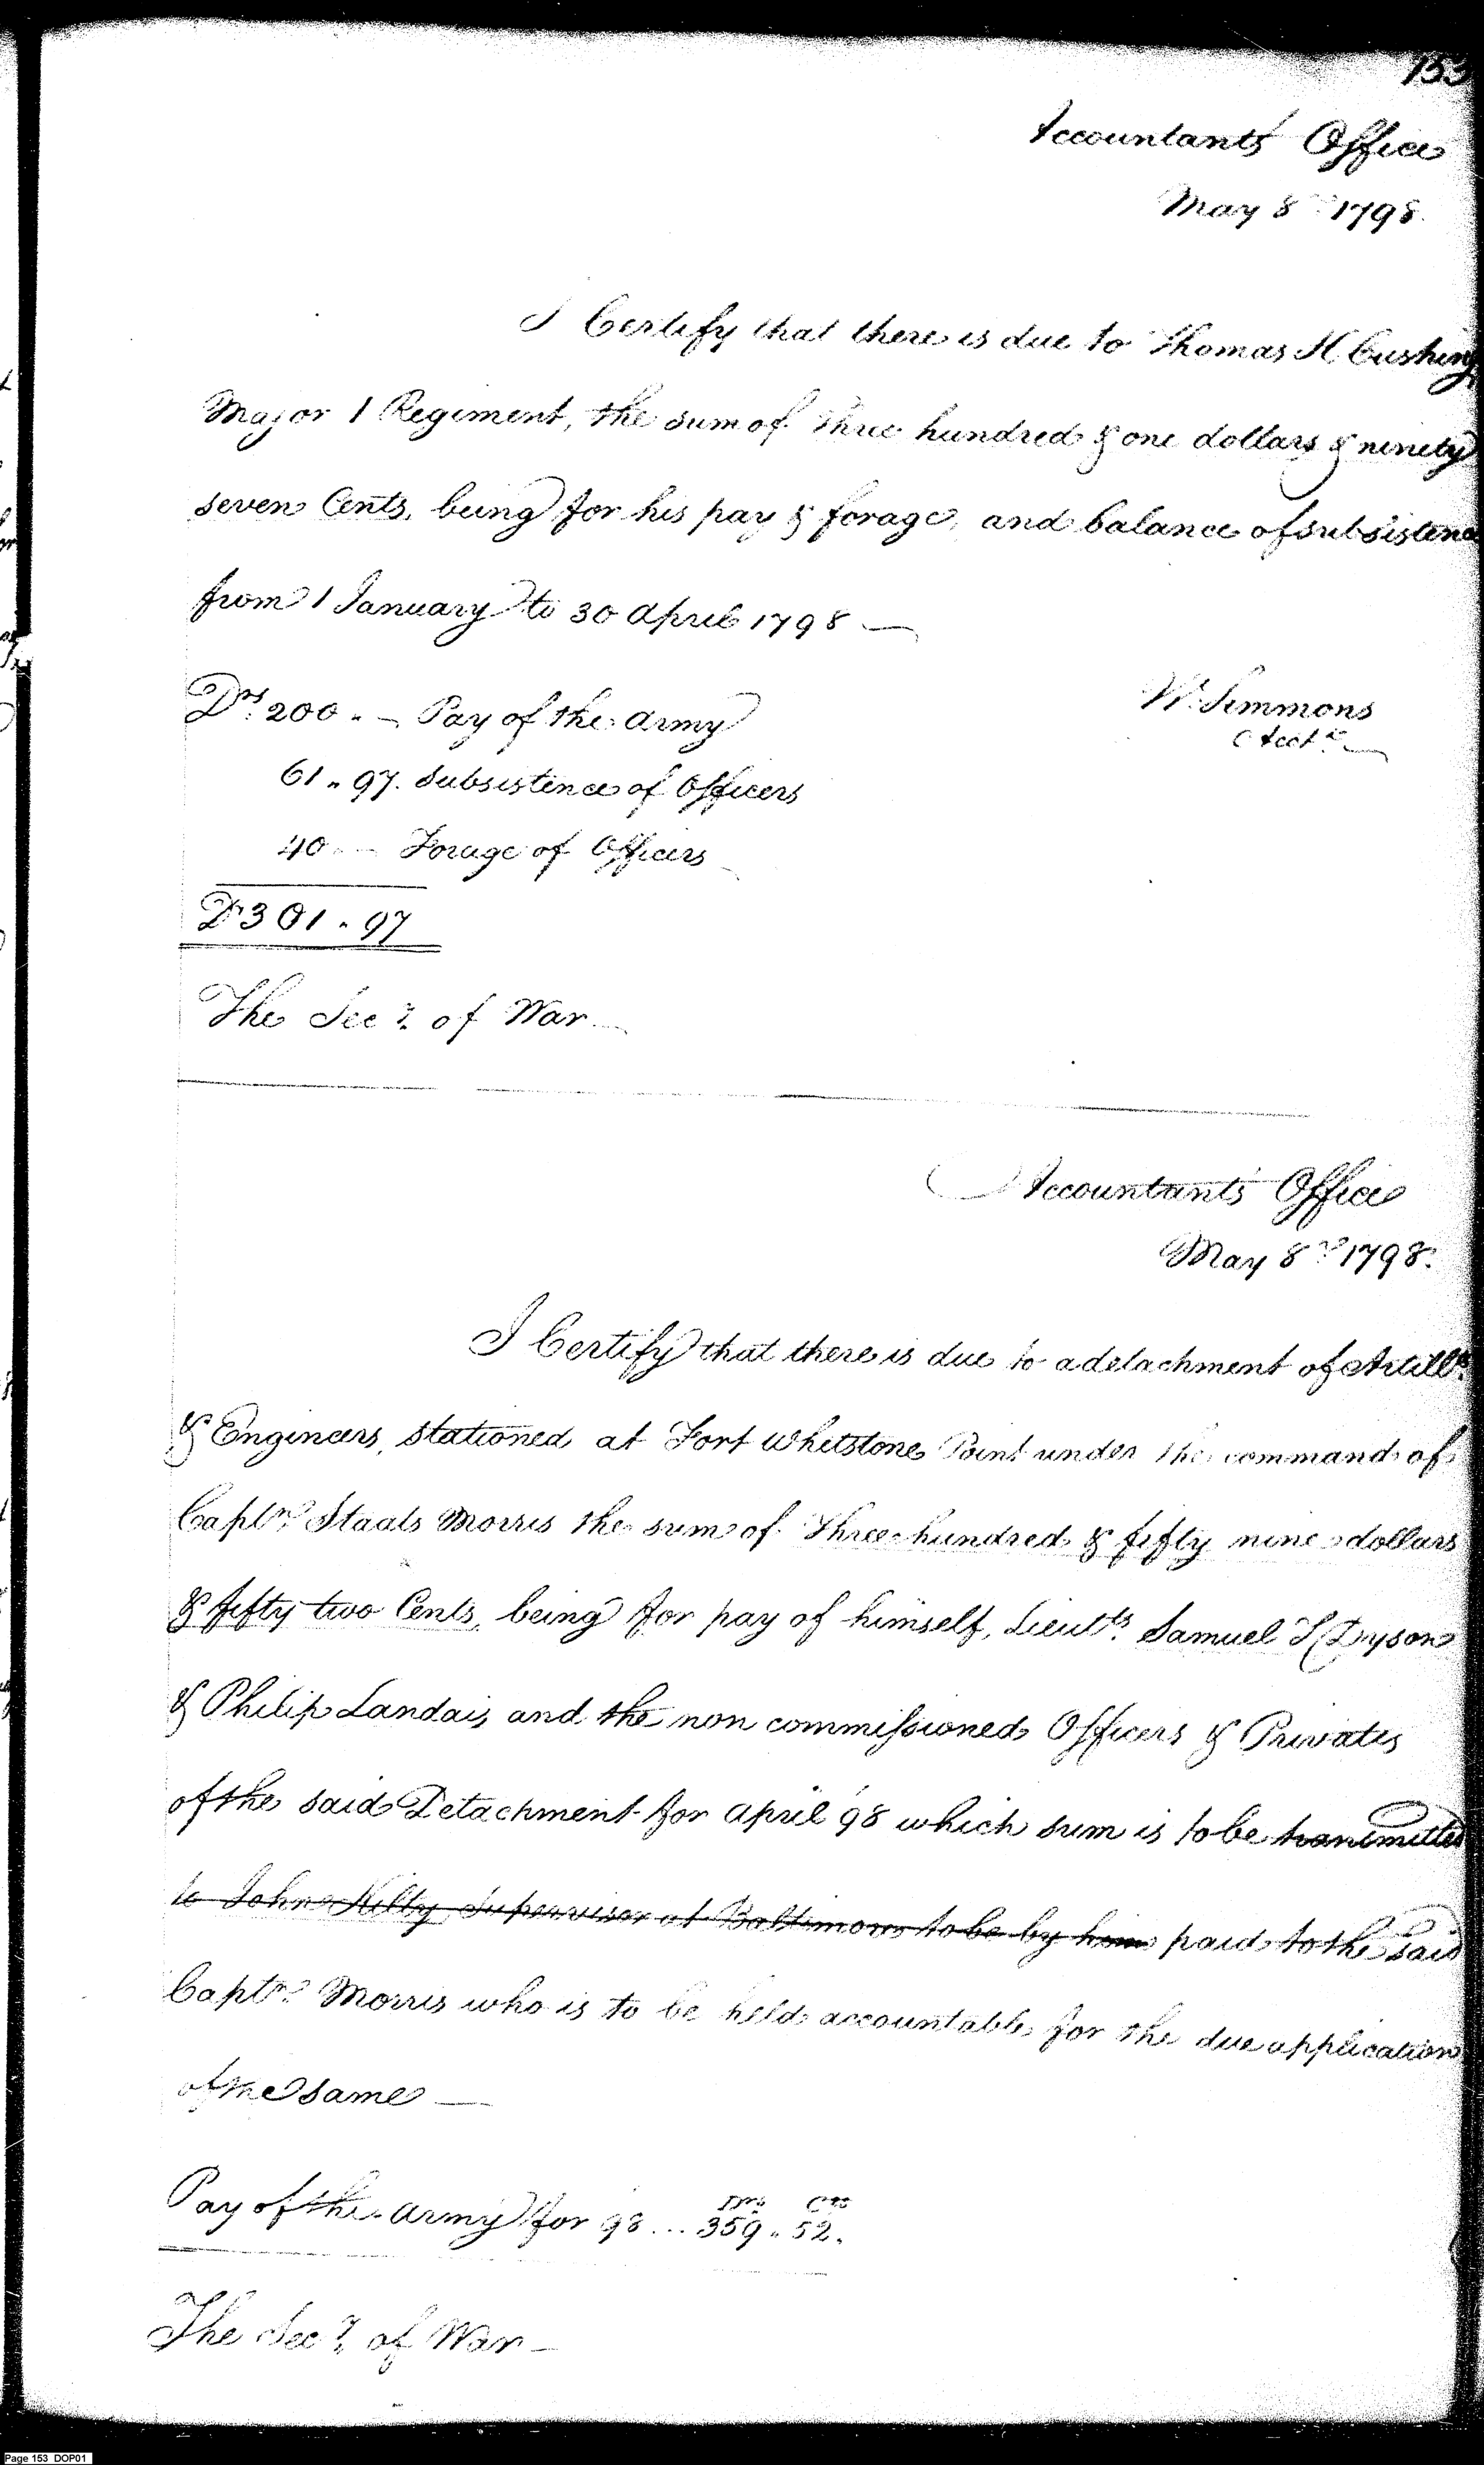 153
Accountants Office
May 8th 1798.
I Certify that there is due to Thomas H Cushing
Major 1 Regiment, the sum of Three hundred & one dollars & ninety
seven Cents, being for his pay & forage, and balance of subsistence
from 1 January to 30 April 1798 —
Drs 200 . — Pay of the Army
Wm Simmons
Acct
61 . 97. Subsistence of Officers
40 — Forage of Officers
Dr 301 . 97
The Secy of War —
Accountants Office
May 8th 1798.
I Certify that there is due to a detachment of Artills
& Engineers, stationed at Fort Whetstone Point under the command of
Captn Staats Morris the sum of Three hundred & fifty nine dollars
& fifty two Cents, being for pay of himself, Lieuts. Samuel T Dyson
& Philip Landais, and the non commissioned Officers & Privates
of the said Detachment for April 98 which sum is to be transmitted
to John Kilty Supervisor at Baltimore to be by him paid to the said
Captn Morris who is to be held accountable for the due application
of the same —
Drs Cts
Pay of the Army for 98 ... 359 . 52.
The Secy of War —
Page 153 DOP01